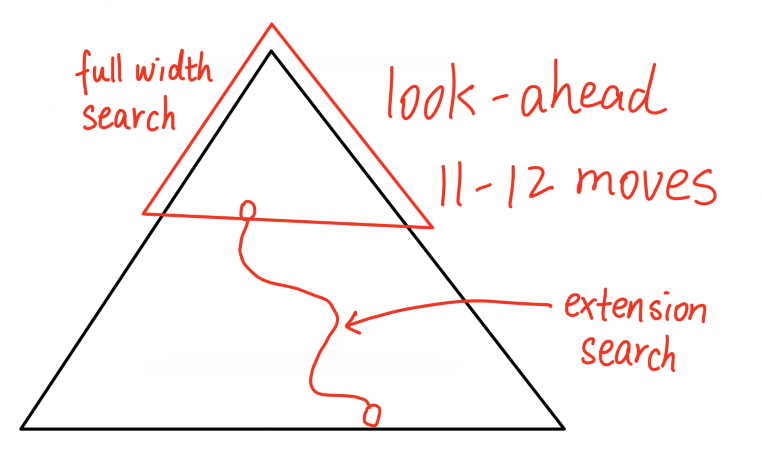 full width
search
look-ahead
11-12 moves
extension
search